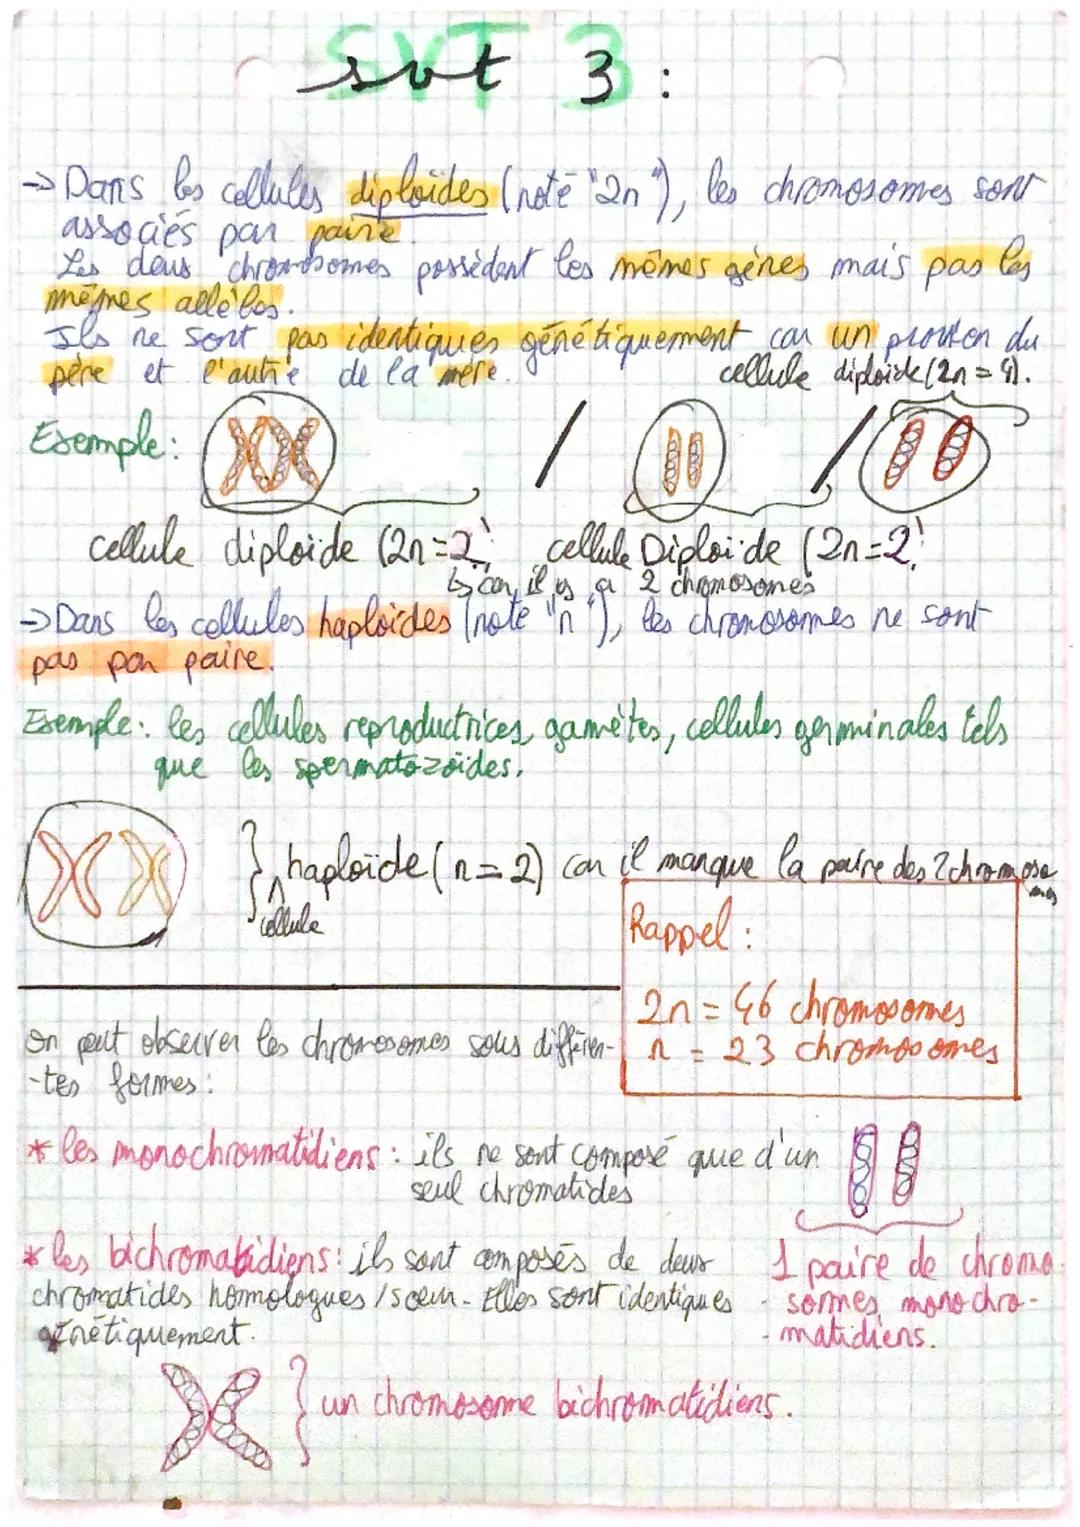 svt 3 :
-> Dans les cellules diploïdes (noté "2n"), les chromosomes sont
associés par paire.
Les deux chromosomes possèdent les mêmes gènes mais pas les
mêmes allèles.
Ils ne sont pas identiques génétiquement car un du
père et l'autre de la mère.
cellule diploïde (2n = 4).
Exemple: / /
cellule diploïde (2n=2) cellule Diploïde (2n=2)
↳ car il y a 2 chromosomes
-> Dans les cellules haploïdes (noté "n"), les chromosomes ne sont
pas par paire.
Exemple: les cellules reproductrices, gamètes, cellules germinales tels
que les spermatozoïdes.
haploïde (n=2) car il manque la paire des 2 chromoso
mes
cellule
Rappel :
2n = 46 chromosomes
n = 23 chromosomes
On peut observer les chromosomes sous différen-
-tes formes :
* les monochromatidiens : ils ne sont composé que d'un
seul chromatides
* les bichromatidiens : ils sont composés de deux
chromatides homologues / sœur. Elles sont identiques
génétiquement.
1 paire de chromo-
- somes monochro-
- matidiens.
un chromosome bichromatidiens.